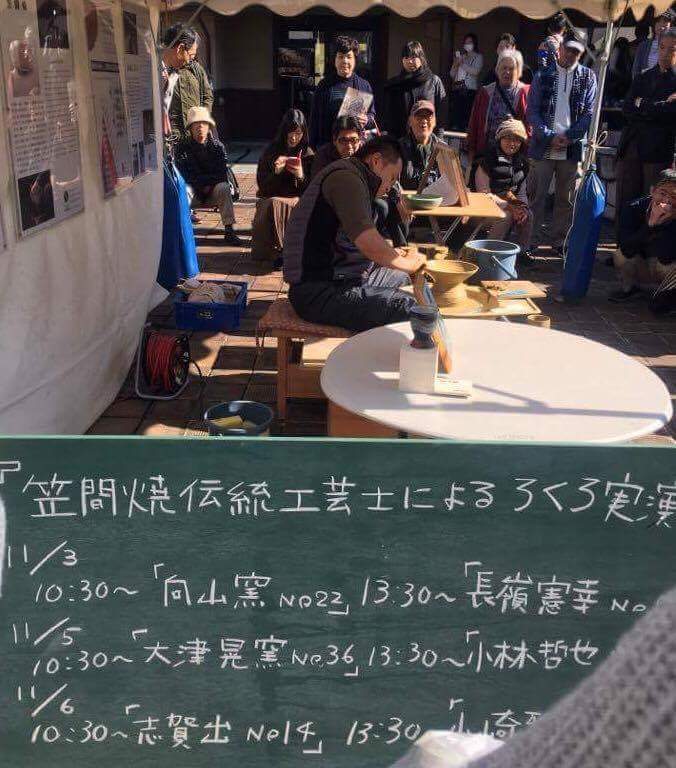 『笠間焼伝統工芸士によるろくろ実演
11/3
10:30～「向山窯 No22」 13:30～「長嶺憲幸 No
11/5
10:30～「大津晃窯 No36」 13:30～「小林哲也
11/6
10:30～「志賀出 No14」 13:30～「小崎